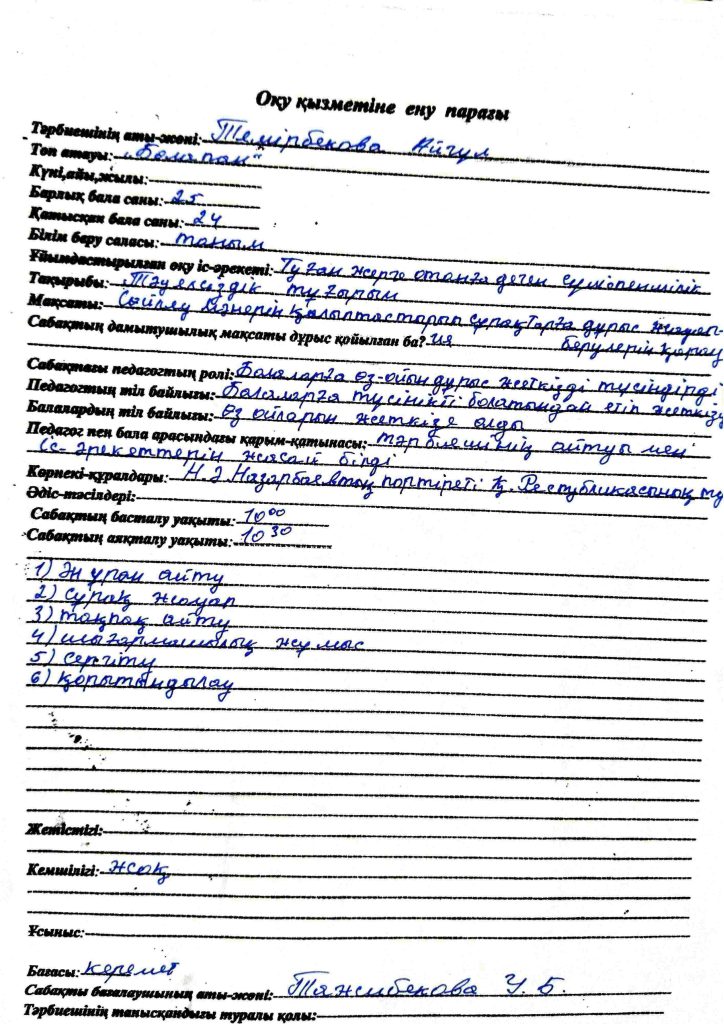 Оқу қызметіне ену парағы
Тәрбиешінің аты-жөні: Темірбекова Айгул
Топ атауы: „Балапан“
Күні,айы,жылы:
Барлық бала саны: 25
Қатысқан бала саны: 24
Білім беру саласы: таным
Ұйымдастырылған оқу іс-әрекеті: Туған жерге отанға деген сүйіспеншілік
Тақырыбы: Тәуелсіздік тұғырым
Мақсаты: Сөйлеу мәнерін қалыптастырып сұрақтарға дұрыс жауап-
Сабақтың дамытушылық мақсаты дұрыс қойылған ба? ия берулерін қарау
Сабақтағы педагогтың рөлі: Балаларға өз-ойын дұрыс жеткізді түсіндірді
Педагогтың тіл байлығы: Балаларға түсінікті болатындай етіп жеткізу
Балалардың тіл байлығы: Өз ойларын жеткізе алды
Педагог пен бала арасындағы қарым-қатынасы: тәрбиешінің айтуы мен
іс-әрекеттерін жасай білді
Көрнекі-құралдары: Н.Ә.Назарбаевтың портіреті Қ. Республикасының ту
Әдіс-тәсілдері:
Сабақтың басталу уақыты: 10⁰⁰
Сабақтың аяқталу уақыты: 10³⁰
1) Ән ұран айту
2) сұрақ жауап
3) тақпақ айту
4) шығармашылық жұмыс
5) сергіту
6) қорытындылау
Жетістігі:
Кемшілігі: жоқ
Ұсыныс:
Бағасы: керемет
Сабақты бағалаушының аты-жөні: Тяжибекова У. Б.
Тәрбиешінің танысқандығы туралы қолы: